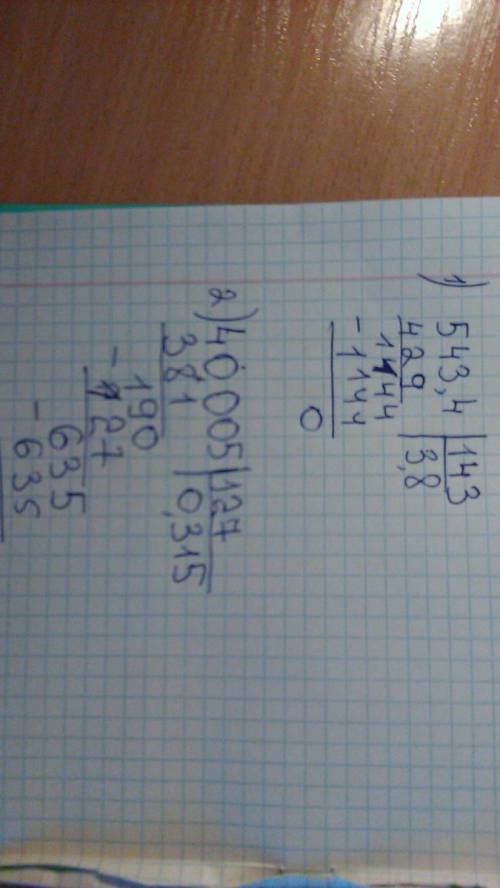 1) 543,4 | 143
429 | 3,8
1144
-1144
0
2) 40005 | 127
381 | 0,315
190
-127
635
-635